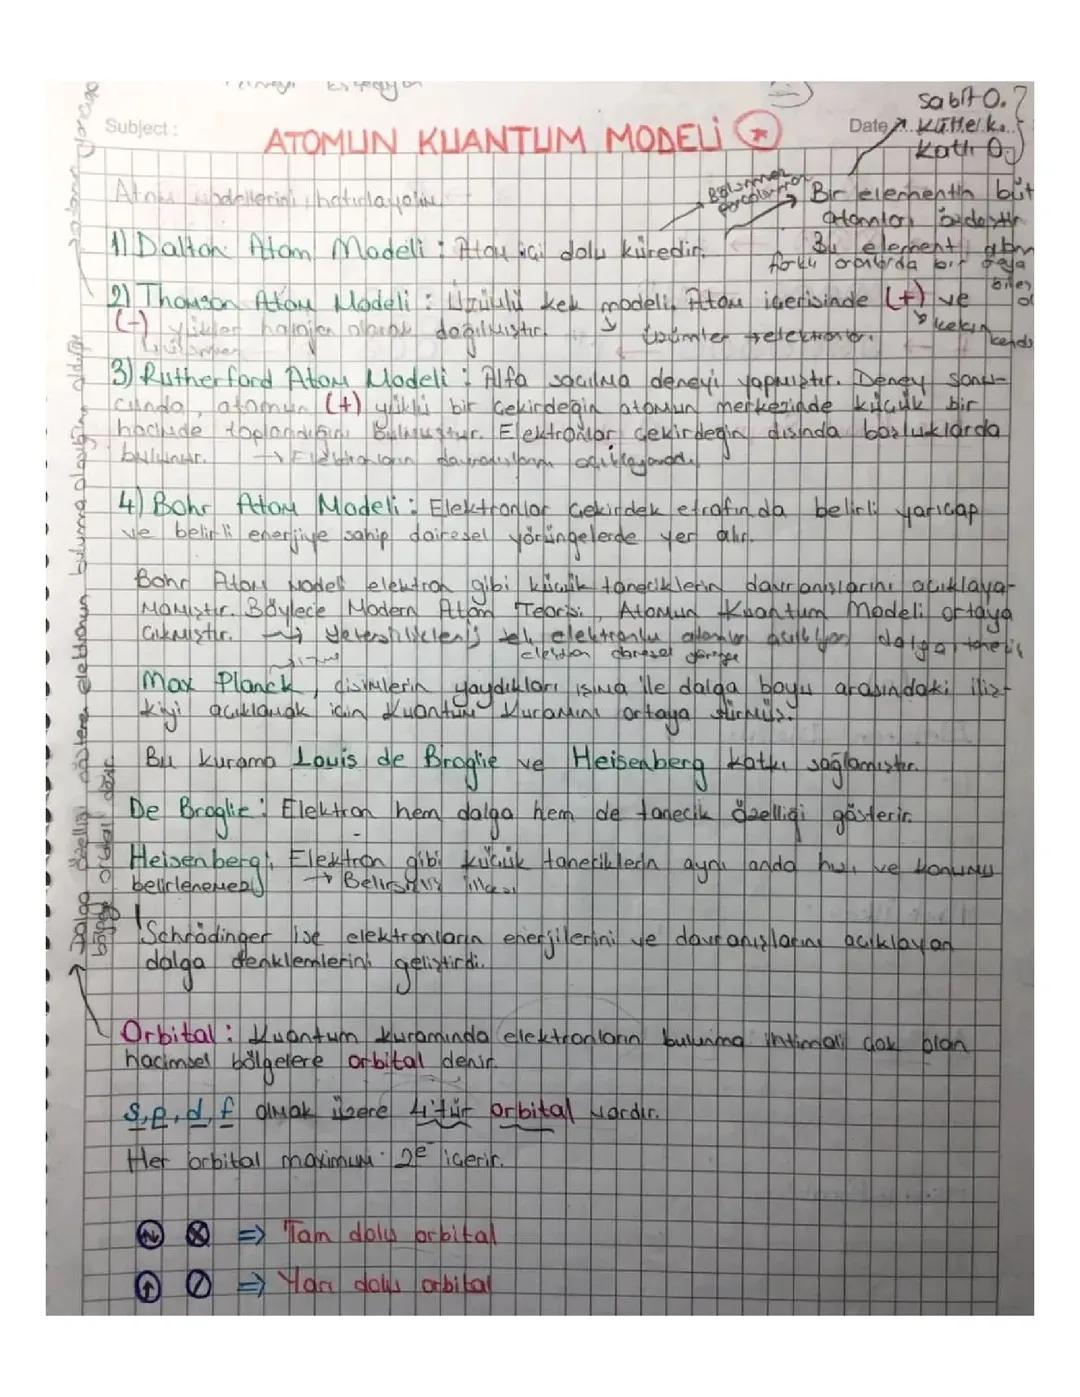 sabit O.
Subject :
Date
Kütle k.
ATOMUN KUANTUM MODELİ *
Katlı O.
Atom modellerini hatırlayalım
Bölünmez
parçalanmaz
Bir elementin büt
atomları özdeştir
1) Dalton Atom Modeli : Atom içi dolu küredir.
Bu element atom
farklı oranlarda bir araya
2) Thomson Atom Modeli : Üzümlü kek modeli. Atom içerisinde (+) ve
(-) yükler homojen olarak dağılmıştır.
üzümler → elektronlar.
kekin
kendi
3) Rutherford Atom Modeli : Alfa saçılma deneyi yapmıştır. Deney sonu-
cunda, atomun (+) yüklü bir çekirdeğin atomun merkezinde küçük bir
hacimde toplandığını bulmuştur. Elektronlar çekirdeğin dışında boşluklarda
bulunur. → Elektronların davranışlarını açıklayamadı
4) Bohr Atom Modeli : Elektronlar çekirdek etrafında belirli yarıçap
ve belirli enerjiye sahip dairesel yörüngelerde yer alır.
Bohr Atom Modeli elektron gibi küçük taneciklerin davranışlarını açıklaya-
mamıştır. Böylece Modern Atom Teorisi, Atomun Kuantum Modeli ortaya
çıkmıştır. → Yetersizlikleri; tek elektronlu atomları açıklıyor dalga, tanecik
elektron dairesel yörünge
Max Planck, cisimlerin yaydıkları ışıma ile dalga boyu arasındaki iliş-
kiyi açıklamak için Kuantum Kuramını ortaya sürmüş.
Bu kurama Louis de Broglie ve Heisenberg katkı sağlamıştır.
De Broglie : Elektron hem dalga hem de tanecik özelliği gösterir.
Heisenberg : Elektron gibi küçük taneciklerin aynı anda hızı ve konumu
belirlenemez → Belirsizlik ilkesi
Schrödinger ise elektronların enerjilerini ve davranışlarını açıklayan
dalga denklemlerini geliştirdi.
Orbital : Kuantum kuramında elektronların bulunma ihtimali çok olan
hacimsel bölgelere orbital denir.
s, p, d, f olmak üzere 4 tür orbital vardır.
Her orbital maximum 2e⁻ içerir.
⇒ Tam dolu orbital
⇒ Yarı dolu orbital
Dalga özelliği gösteren elektronun bulunma olasılığının olduğu
bölge orbital